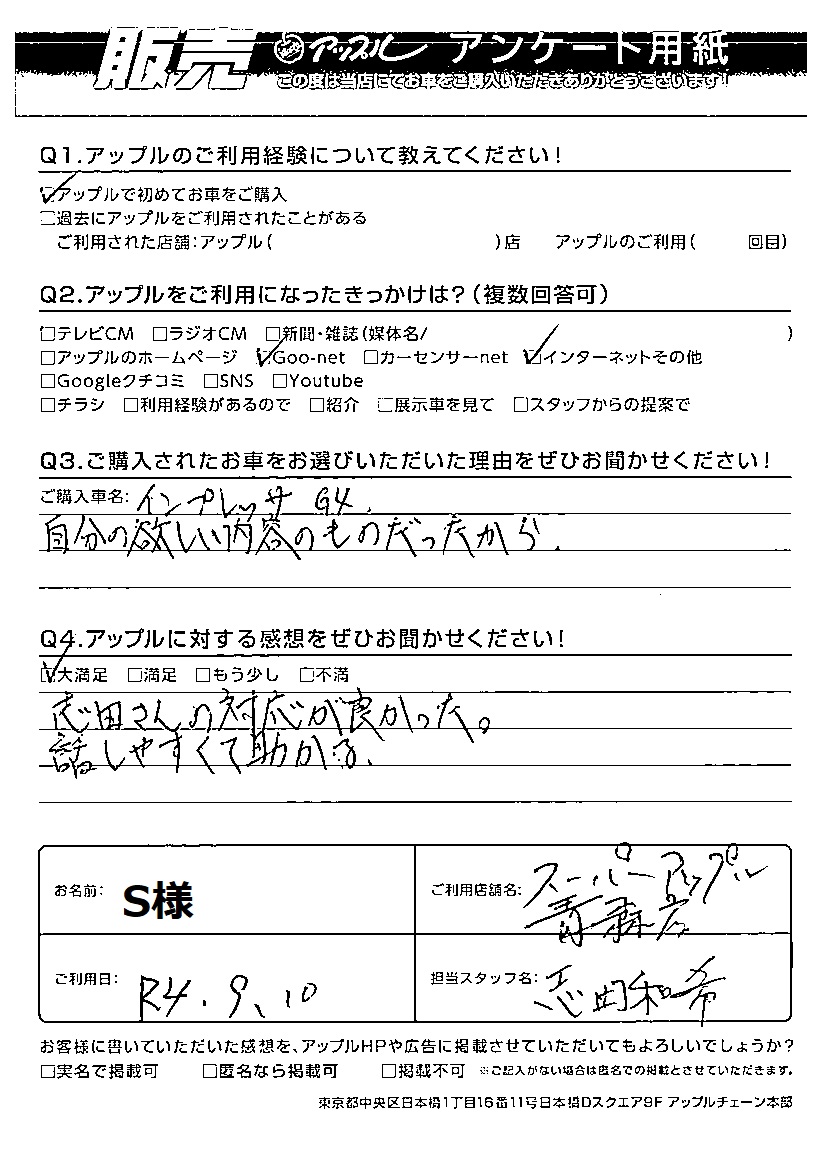 販売 アップル アンケート用紙
この度は当店にてお車をご購入いただきありがとうございます!
Q1.アップルのご利用経験について教えてください!
☑アップルで初めてお車をご購入
□過去にアップルをご利用されたことがある
ご利用された店舗:アップル( )店 アップルのご利用( 回目)
Q2.アップルをご利用になったきっかけは?(複数回答可)
□テレビCM □ラジオCM □新聞・雑誌(媒体名/ )
□アップルのホームページ ☑Goo-net □カーセンサーnet ☑インターネットその他
□Googleクチコミ □SNS □Youtube
□チラシ □利用経験があるので □紹介 □展示車を見て □スタッフからの提案で
Q3.ご購入されたお車をお選びいただいた理由をぜひお聞かせください!
ご購入車名: インプレッサ G4.
自分の欲しい内容のものだったから.
Q4.アップルに対する感想をぜひお聞かせください!
☑大満足 □満足 □もう少し □不満
志田さんの対応が良かった。
話しやすくて助かる、
お名前: S様
ご利用店舗名: スーパーアップル
青森店
ご利用日: R4.9.10
担当スタッフ名: 志田和希
お客様に書いていただいた感想を、アップルHPや広告に掲載させていただいてもよろしいでしょうか?
□実名で掲載可 □匿名なら掲載可 □掲載不可 ※ご記入がない場合は匿名での掲載とさせていただきます。
東京都中央区日本橋1丁目16番11号日本橋Dスクエア9F アップルチェーン本部